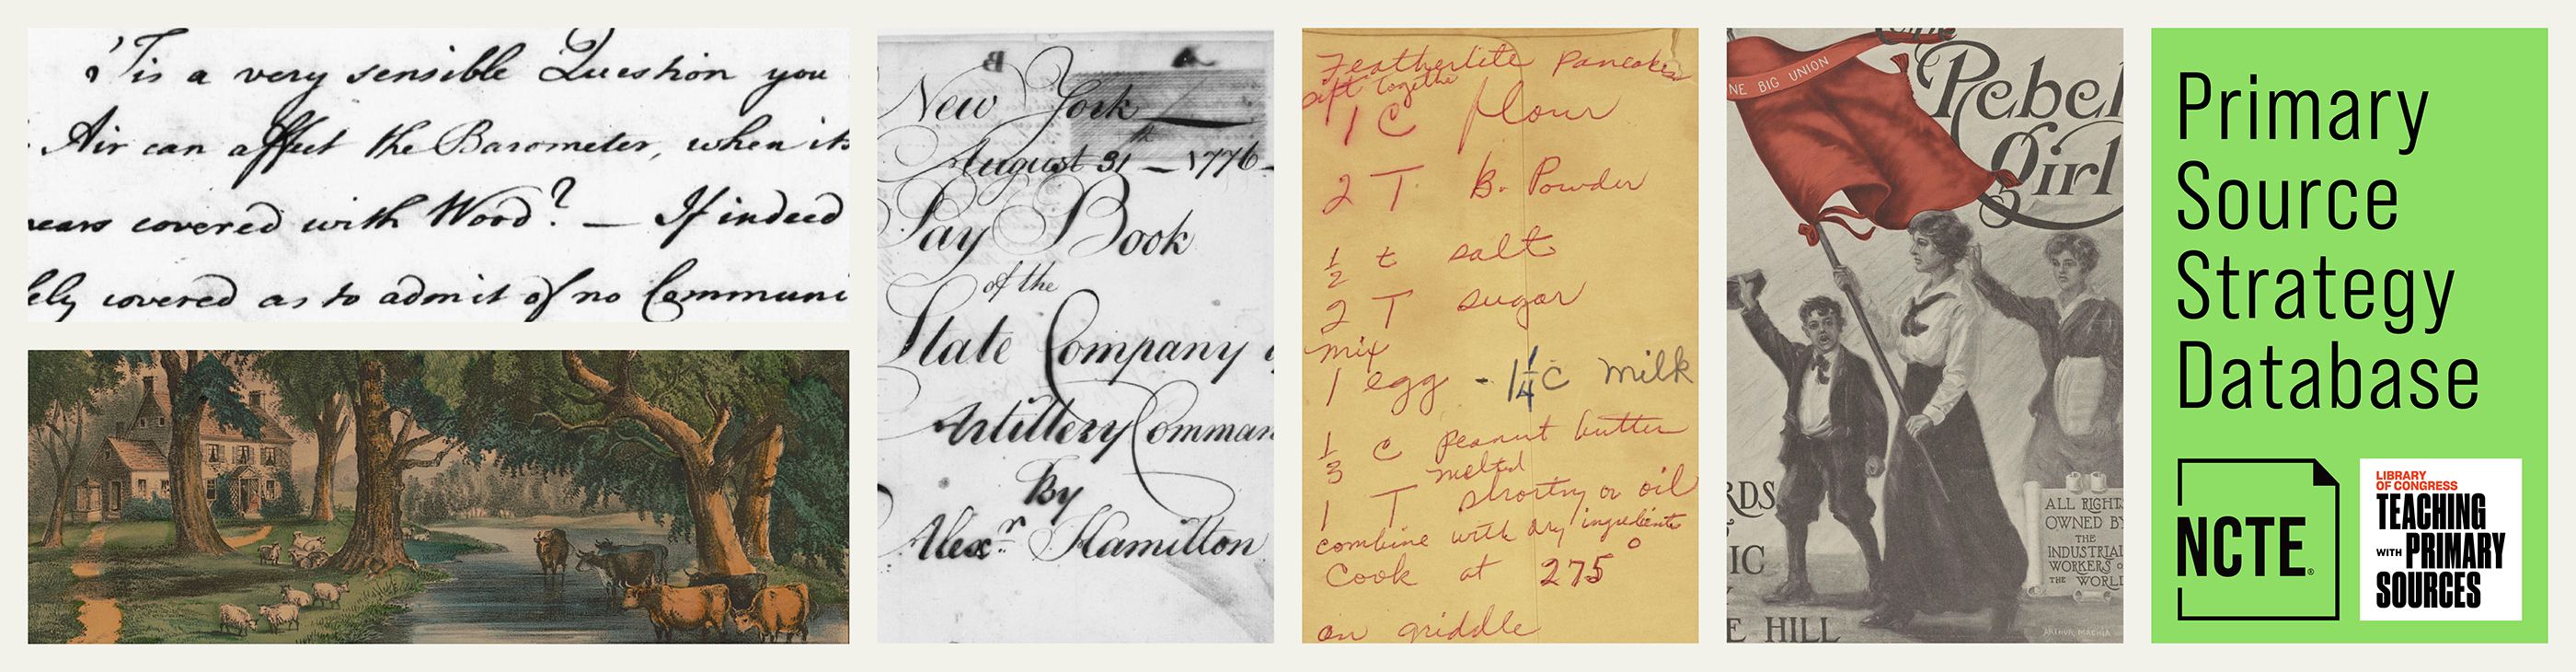 'Tis a very sensible Question you
Air can affect the Barometer, when its
covered with Wood? — If indeed
covered as to admit of no Communi
New York
August 31th — 1776 —
Pay Book
of the
State Company
Artillery Comman
by
Alexr Hamilton
Featherlite Pancakes
sift together
1 C flour
2 T B. Powder
1/2 t salt
2 T sugar
mix
1 egg - 1 1/4 c milk
1/3 C peanut butter
melted
1 T shortng or oil
combine with dry ingredients
Cook at 275°
on griddle
NE BIG UNION
Rebel
Girl
RDS
IC
E HILL
ALL RIGHTS
OWNED BY
THE
INDUSTRIAL
WORKERS
THE WORLD
ARTHUR MACHIA
Primary
Source
Strategy
Database
NCTE®
LIBRARY
OF CONGRESS
TEACHING
WITH PRIMARY
SOURCES